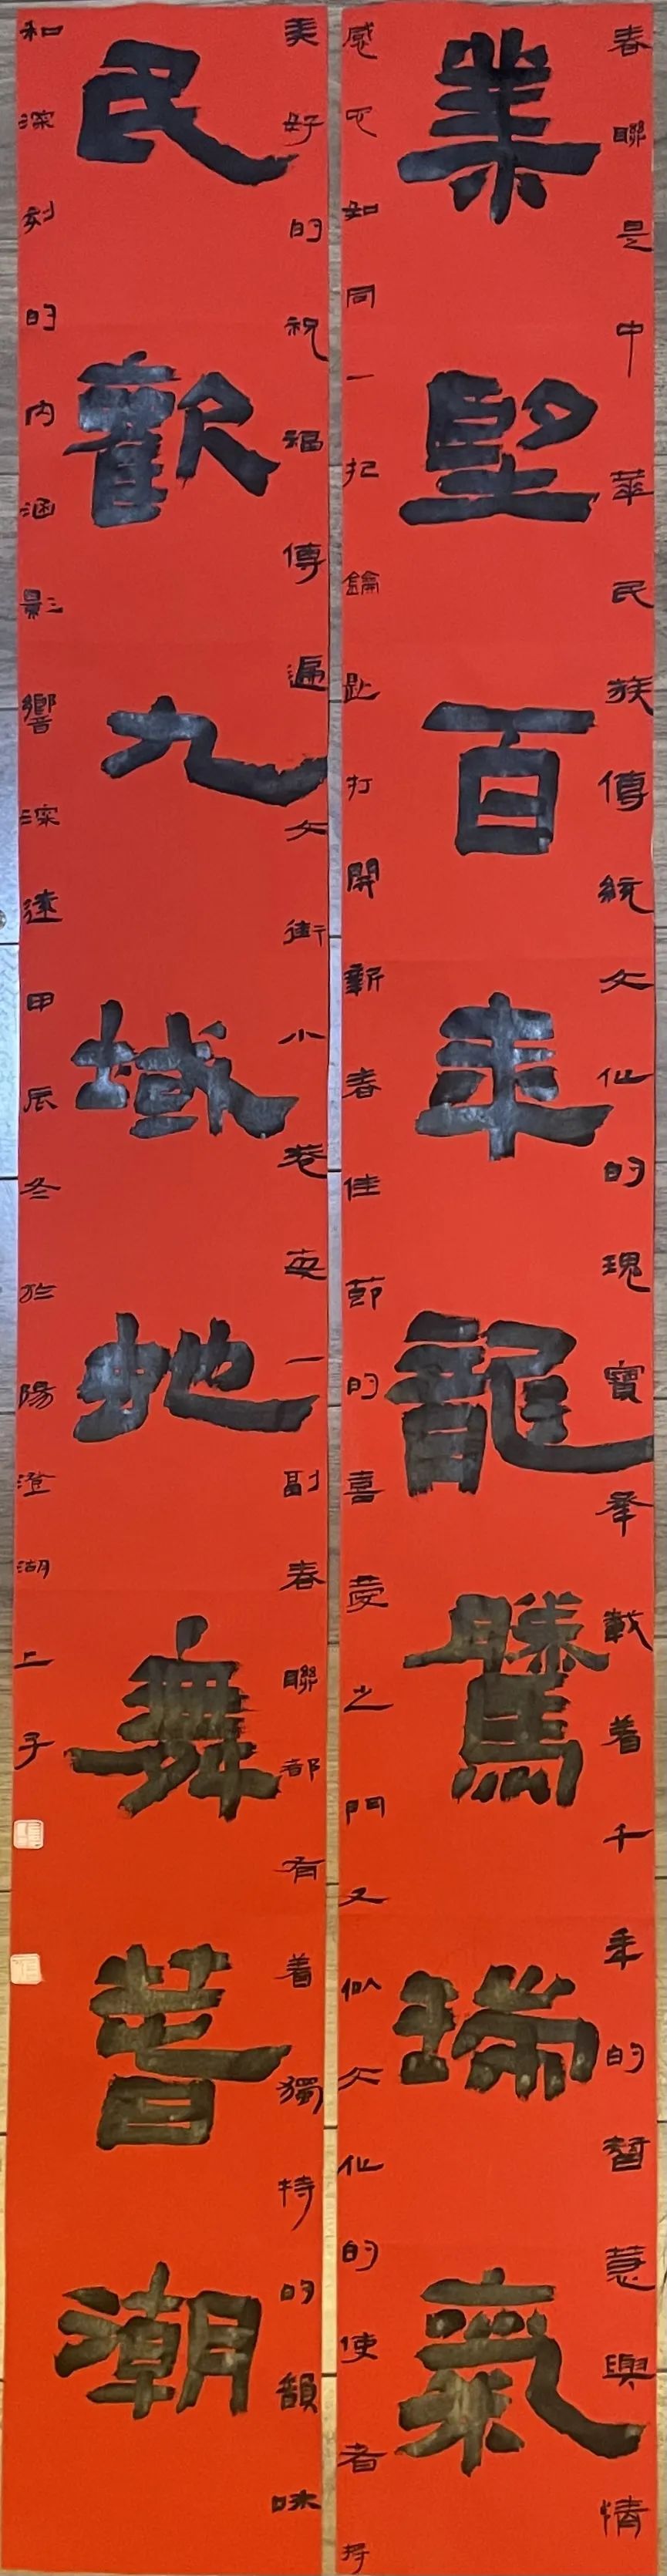 春聯是中華民族傳統文化的瑰寶承載着千年的智慧與情
業望百年龍騰瑞氣
感它如同一把鑰匙打開新春佳節的喜慶之門又似文化的使者將
美好的祝福傳遍大街小巷每一副春聯都有着獨特的韻味
民歡九域虵舞春潮
和深刻的內涵影響深遠甲辰冬於陽澄湖上子